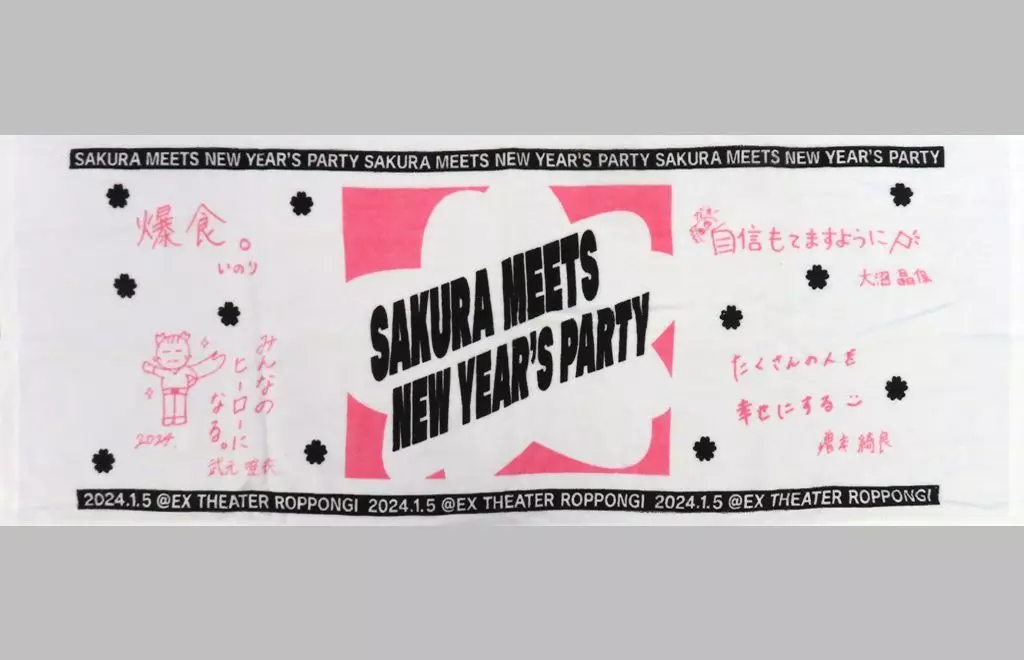 SAKURA MEETS NEW YEAR'S PARTY SAKURA MEETS NEW YEAR'S PARTY SAKURA MEETS NEW YEAR'S PARTY
爆食。
いのり
みんなの
ヒーローに
なる。
武元 唯衣
2024.
SAKURA MEETS
NEW YEAR'S PARTY
自信もてますように
大沼 晶保
たくさんの人を
幸せにする
幸阪
綺良
2024.1.5 @EX THEATER ROPPONGI 2024.1.5 @EX THEATER ROPPONGI 2024.1.5 @EX THEATER ROPPONGI